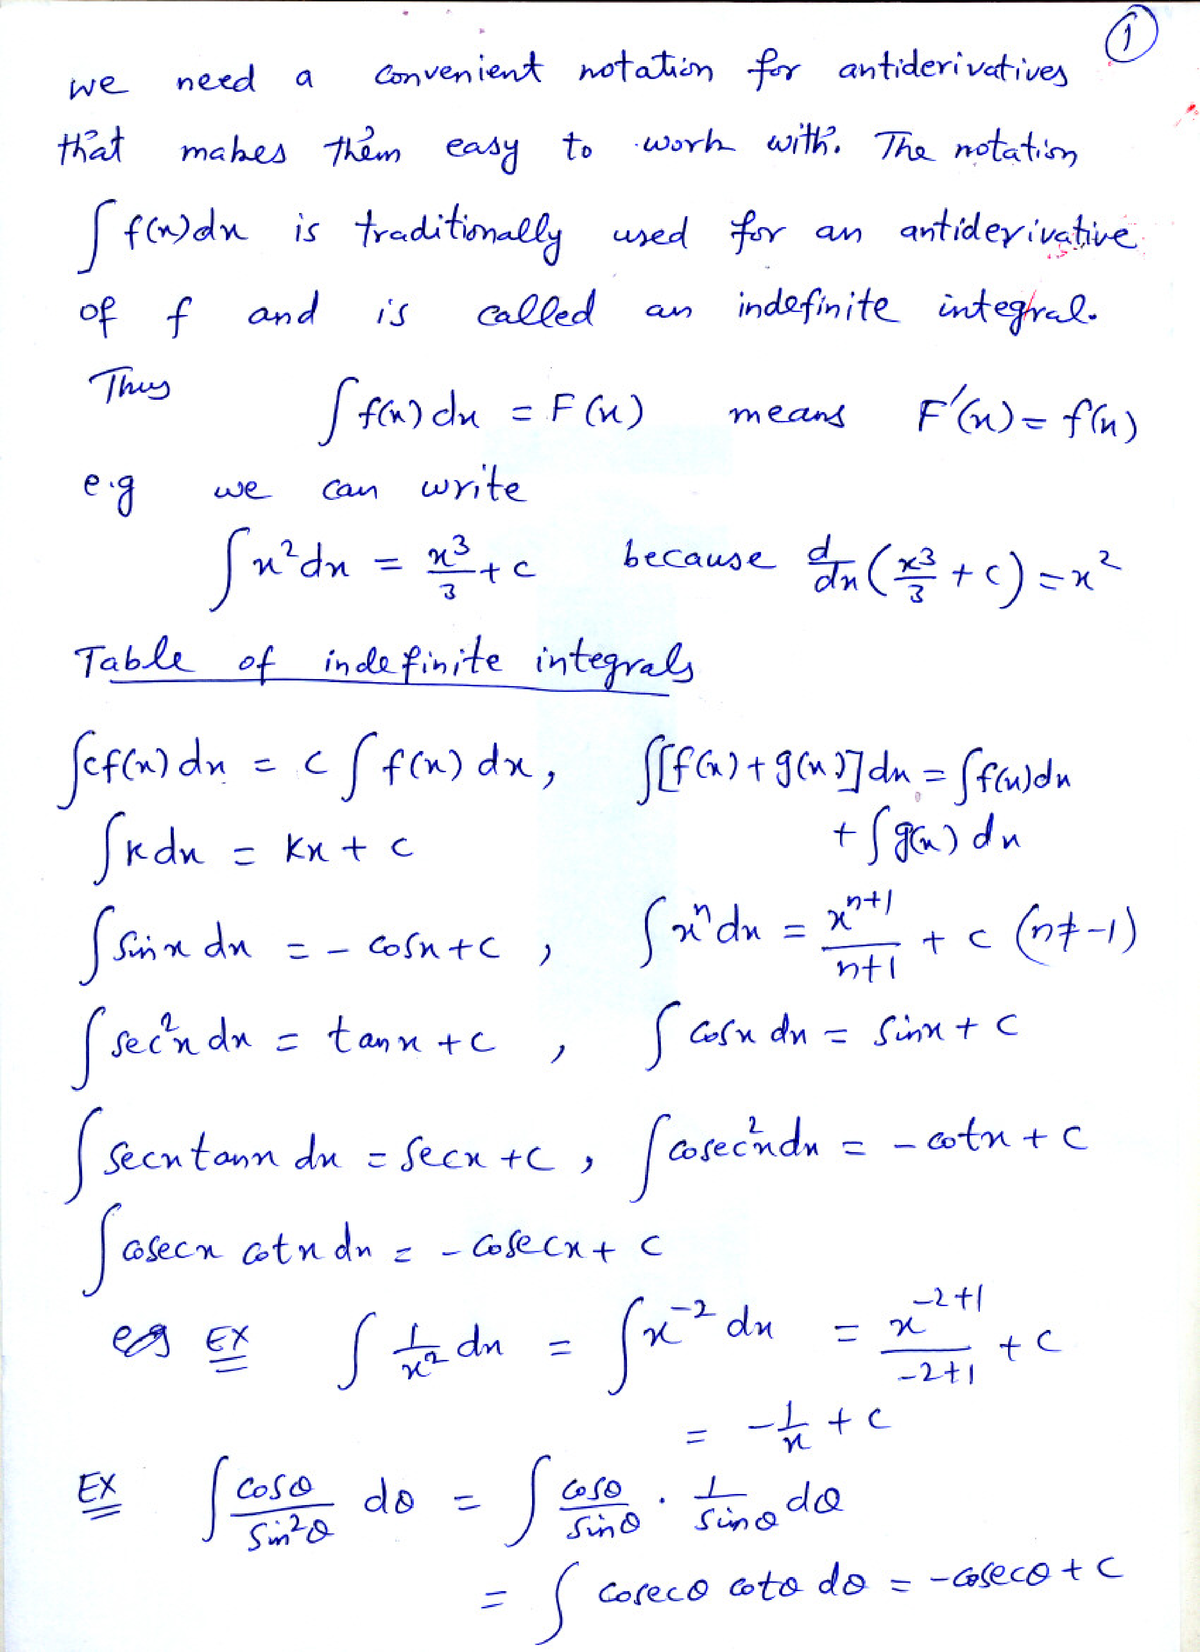 ①
we need a convenient notation for antiderivatives
that makes them easy to work with. The notation
∫ f(x)dx is traditionally used for an antiderivative
of f and is called an indefinite integral.
Thus
∫ f(x) dx = F(x) means F'(x) = f(x)
e.g we can write
∫ x² dx = x³/3 + c because d/dx (x³/3 + c) = x²
Table of indefinite integrals
∫ cf(x) dx = c ∫ f(x) dx, ∫ [f(x) + g(x)] dx = ∫ f(x)dx
+ ∫ g(x) dx
∫ k dx = kx + c
∫ sin x dx = - cosx + c , ∫ xⁿ dx = xⁿ⁺¹/n+1 + c (n ≠ -1)
∫ sec²x dx = tan x + c , ∫ cosx dx = sinx + c
∫ secx tanx dx = secx + c , ∫ cosec²x dx = - cotx + c
∫ cosecx cotx dx = - cosecx + c
eg EX ∫ 1/x² dx = ∫ x⁻² dx = x⁻²⁺¹/-2+1 + c
= -1/x + c
EX ∫ cosθ/sin²θ dθ = ∫ cosθ/sinθ . 1/sinθ dθ
= ∫ cosecθ cotθ dθ = -cosecθ + c